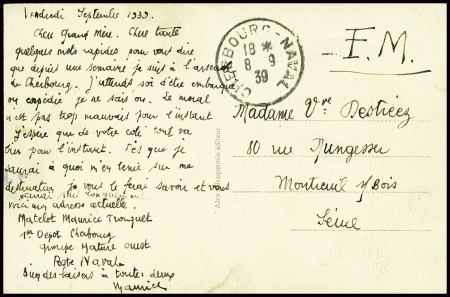 Vendredi Septembre 1939.
Chere Grand Mère. Chere tante
quelques mots rapides pour vous dire
que depuis une semaine je suis à l'arsenal
de Cherbourg. J'attends soi d'être embarqué
ou expédié je ne sais ou. Le moral
n'est pas trop mauvais pour l'instant
J'espère que de votre coté tout va
bien pour l'instant. Dès que je
saurai à quoi m'en tenir sur ma
destination je vous le ferai savoir et vous
voici mon adresse actuelle.
Matelot Maurice Tronquet
1er Depot Cherbourg
groupe Mature ouest
Poste Navale
Bien des baisers à toutes deux
Maurice
CHERBOURG-NAVAL
18 *
8 9
39
F.M.
Madame Vve Destréez
80 rue Nungesser
Montreuil s/Bois
Seine
éditeur